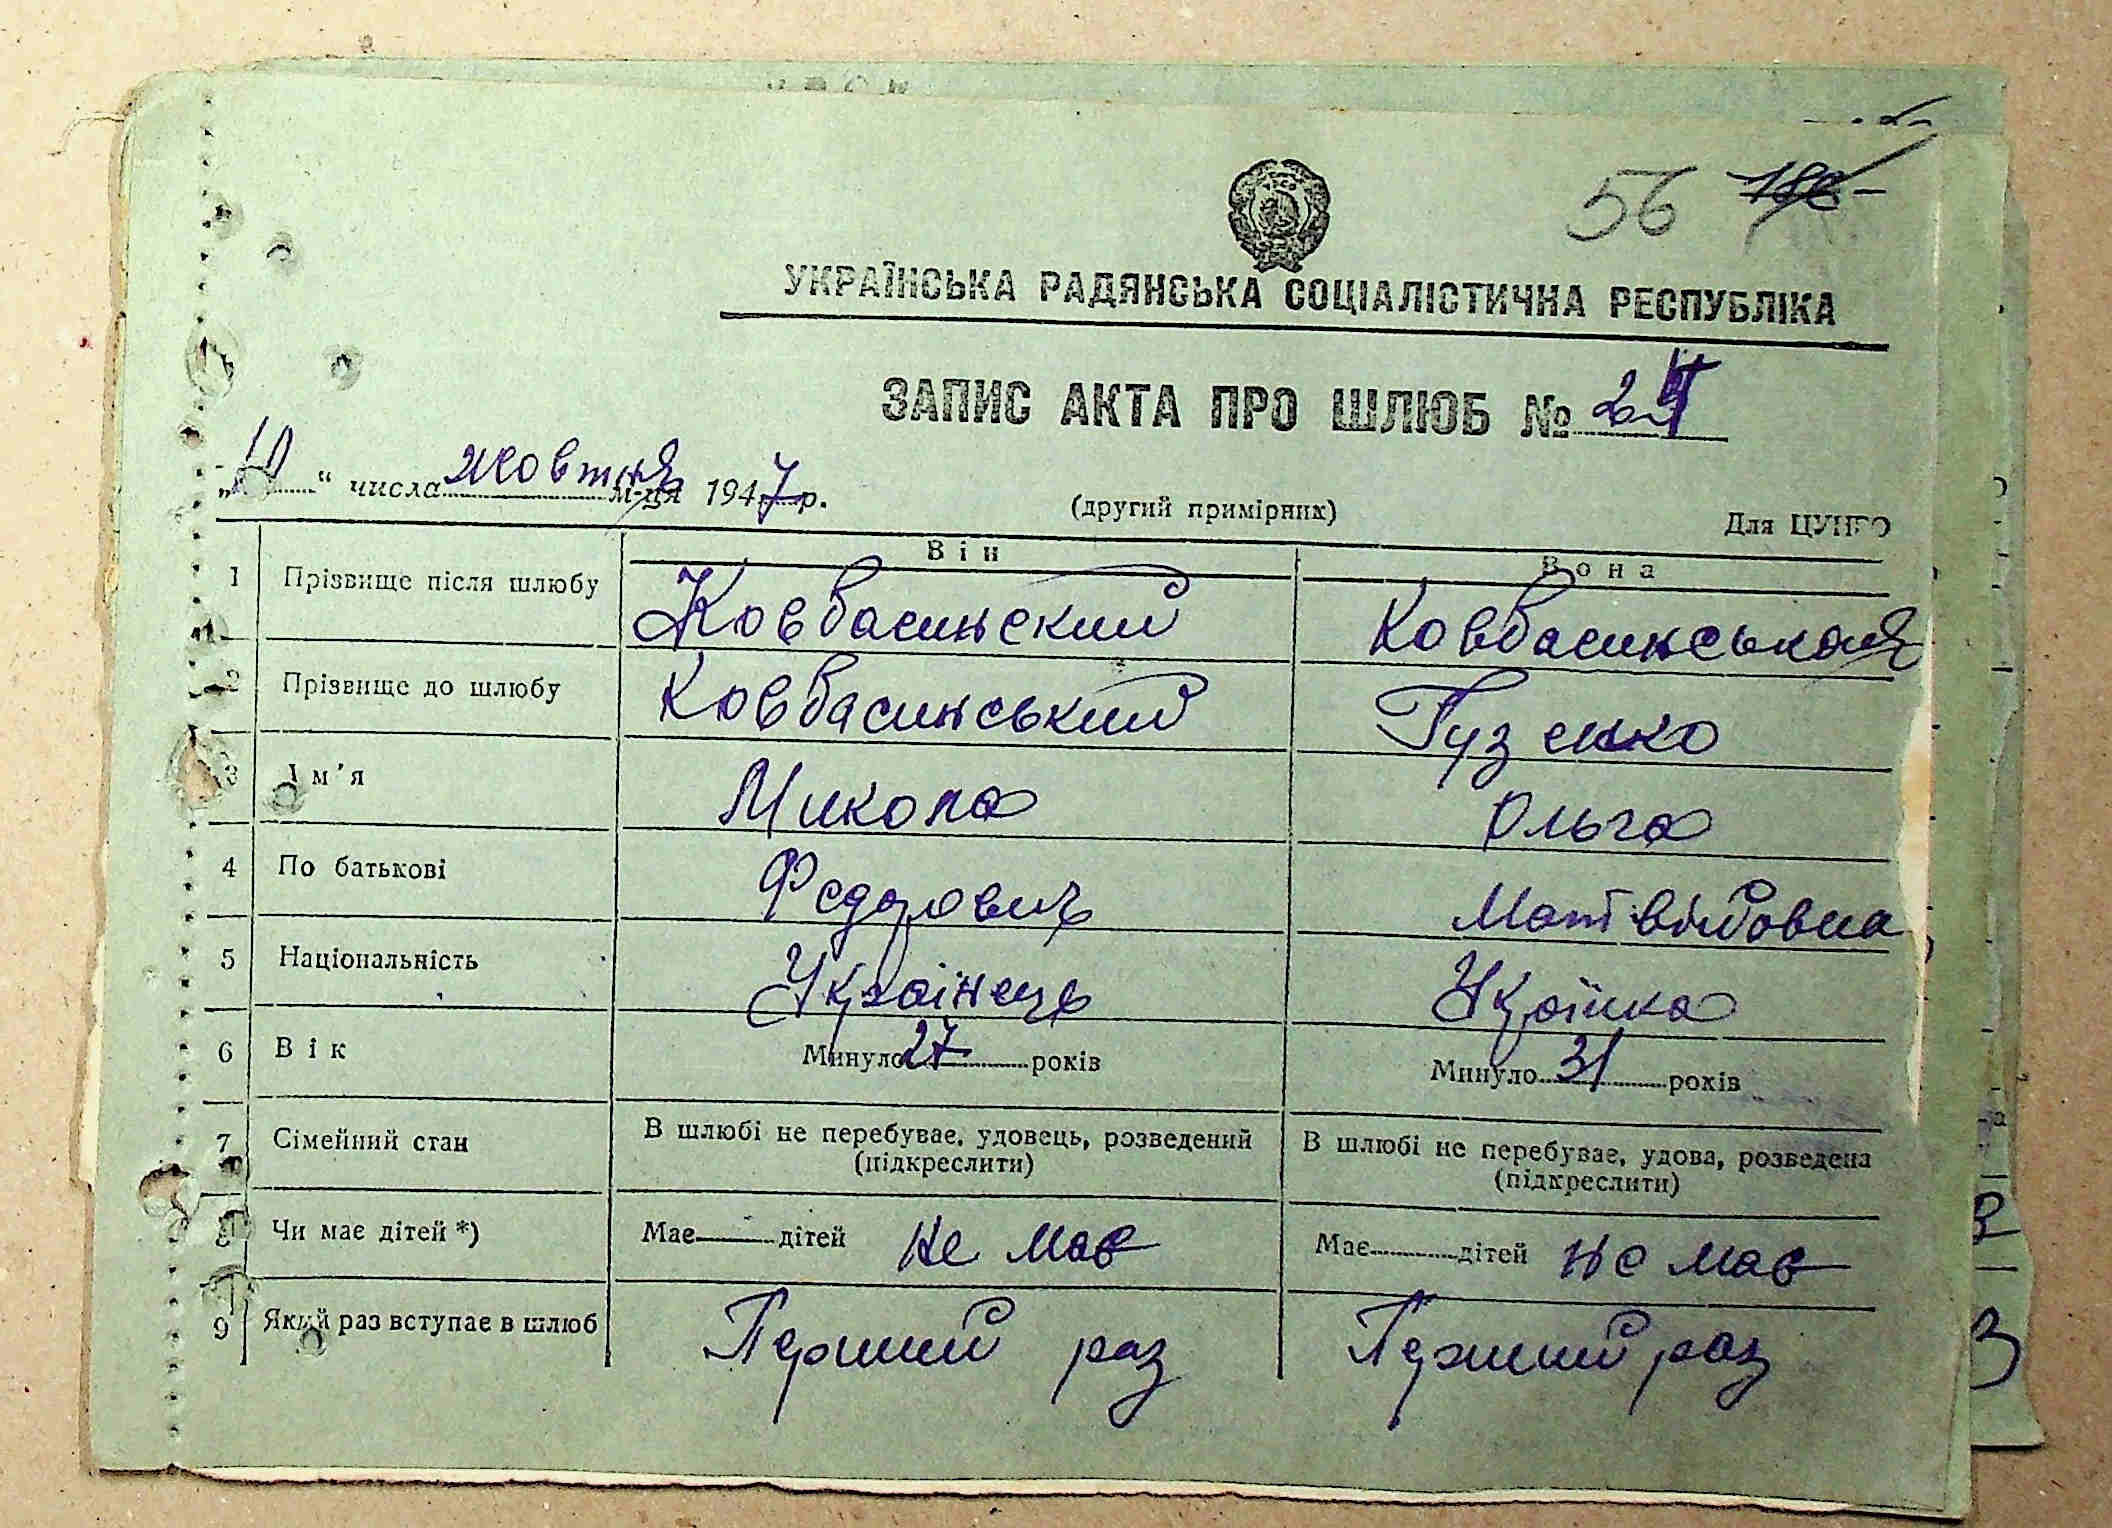 56
УКРАЇНСЬКА РАДЯНСЬКА СОЦІАЛІСТИЧНА РЕСПУБЛІКА
ЗАПИС АКТА ПРО ШЛЮБ №
„10“ числа жовтня м-ця 1947 р.
(другий примірник)
Для ЦУНГО
Він Вона
1 Прізвище після шлюбу Ковбасинский Ковбасинськая
2 Прізвище до шлюбу Ковбасинський Гузенко
3 Ім'я Микола Ольга
4 По батькові Федорович Матвійовна
5 Національність Українець Українка
6 Вік Минуло 27 років Минуло 31 років
7 Сімейний стан В шлюбі не перебуває, удовець, розведений (підкреслити) В шлюбі не перебуває, удова, розведена (підкреслити)
8 Чи має дітей *) Має дітей не має Має дітей не має
9 Який раз вступає в шлюб Перший раз Перший раз